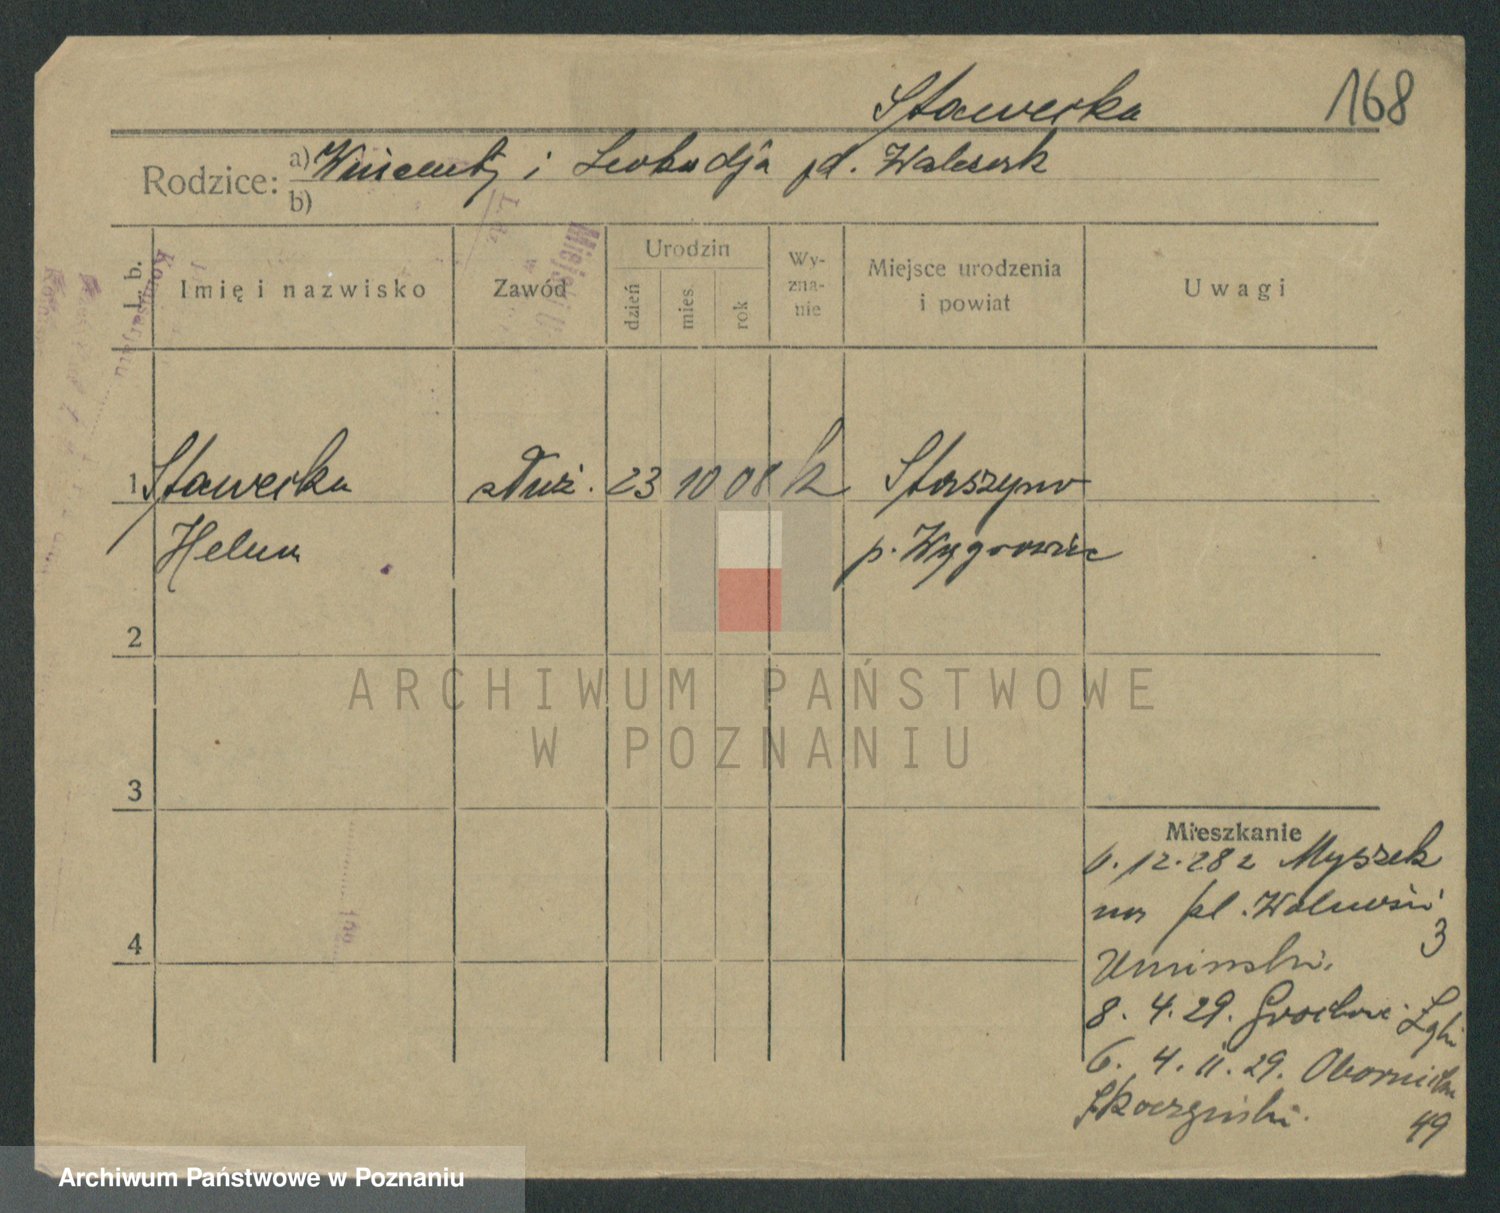 Stawecka
168
Rodzice: a) Wincenty i Leokadja
b)
L. b.
Imię i nazwisko
Zawód
Urodzin
dzień
mies.
rok
Wy-
zna-
nie
Miejsce urodzenia
i powiat
Uwagi
1 Stawecka służ. 23 10 08 k
Helena p. Wągrowiec
2
3
4
Mieszkanie
12.28 z Myszek
na pl. Wolności
3
Umiński.
8. 4. 29.
6. 4. 11. 29. Obornicka
49
ARCHIWUM PAŃSTWOWE
W POZNANIU
Archiwum Państwowe w Poznaniu